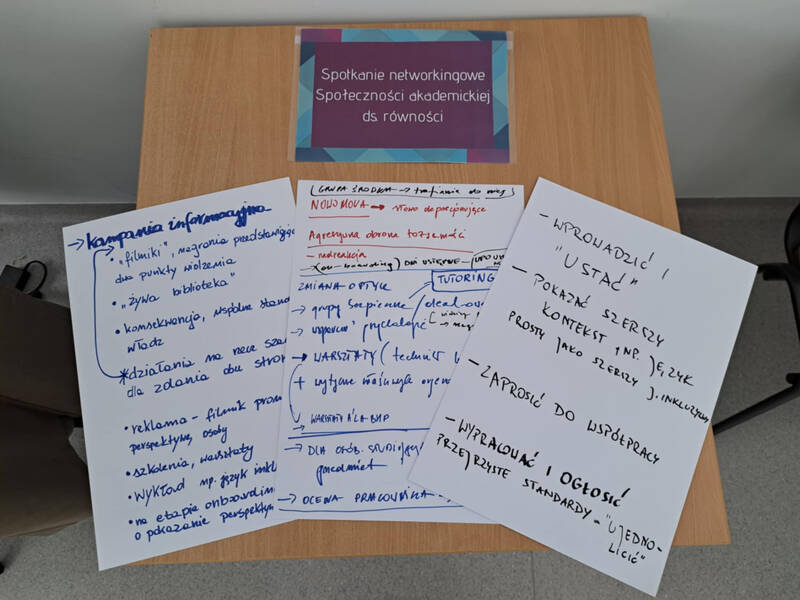 Spotkanie networkingowe
Społeczności akademickiej
ds. równości
→ kampania informacyjna
• "filmiki", nagrania przedstawiające
dwa punkty widzenia
• "żywa biblioteka"
• konsekwencja, wspólne
władz
* działania na rzecz
dla zdania obu stron
• reklama – filmik
perspektywę osoby
• szkolenia, warsztaty
• wykład np. język
• na etapie
o pokazanie
(GRUPA ŚRODKA → trafianie do niej)
NOWOMOWA → słowo deprecjonujące
Agresywna obrona tożsamości
– nadreakcja
(on-boarding)
ZMIANA OPTYK
TUTORING
→ grupy bezpieczne /
→ wsparcie psycholog.
→ WARSZTATY (technik
+ wytyczne
→ WARSZTATY À LA BHP
→ DLA OSÓB STUDIUJĄ
przedmiot
→ OCENA PRACOWNIKA
– WPROWADZIĆ I
"USTAĆ"
– POKAZAĆ SZERSZY
KONTEKST, NP. JĘZYK
PROSTY JAKO SZERSZY J. INKLUZYWNY
– ZAPROSIĆ DO WSPÓŁPRACY
– WYPRACOWAĆ I OGŁOSIĆ
PRZEJRZYSTE STANDARDY – "UJEDNO-
LICIĆ"